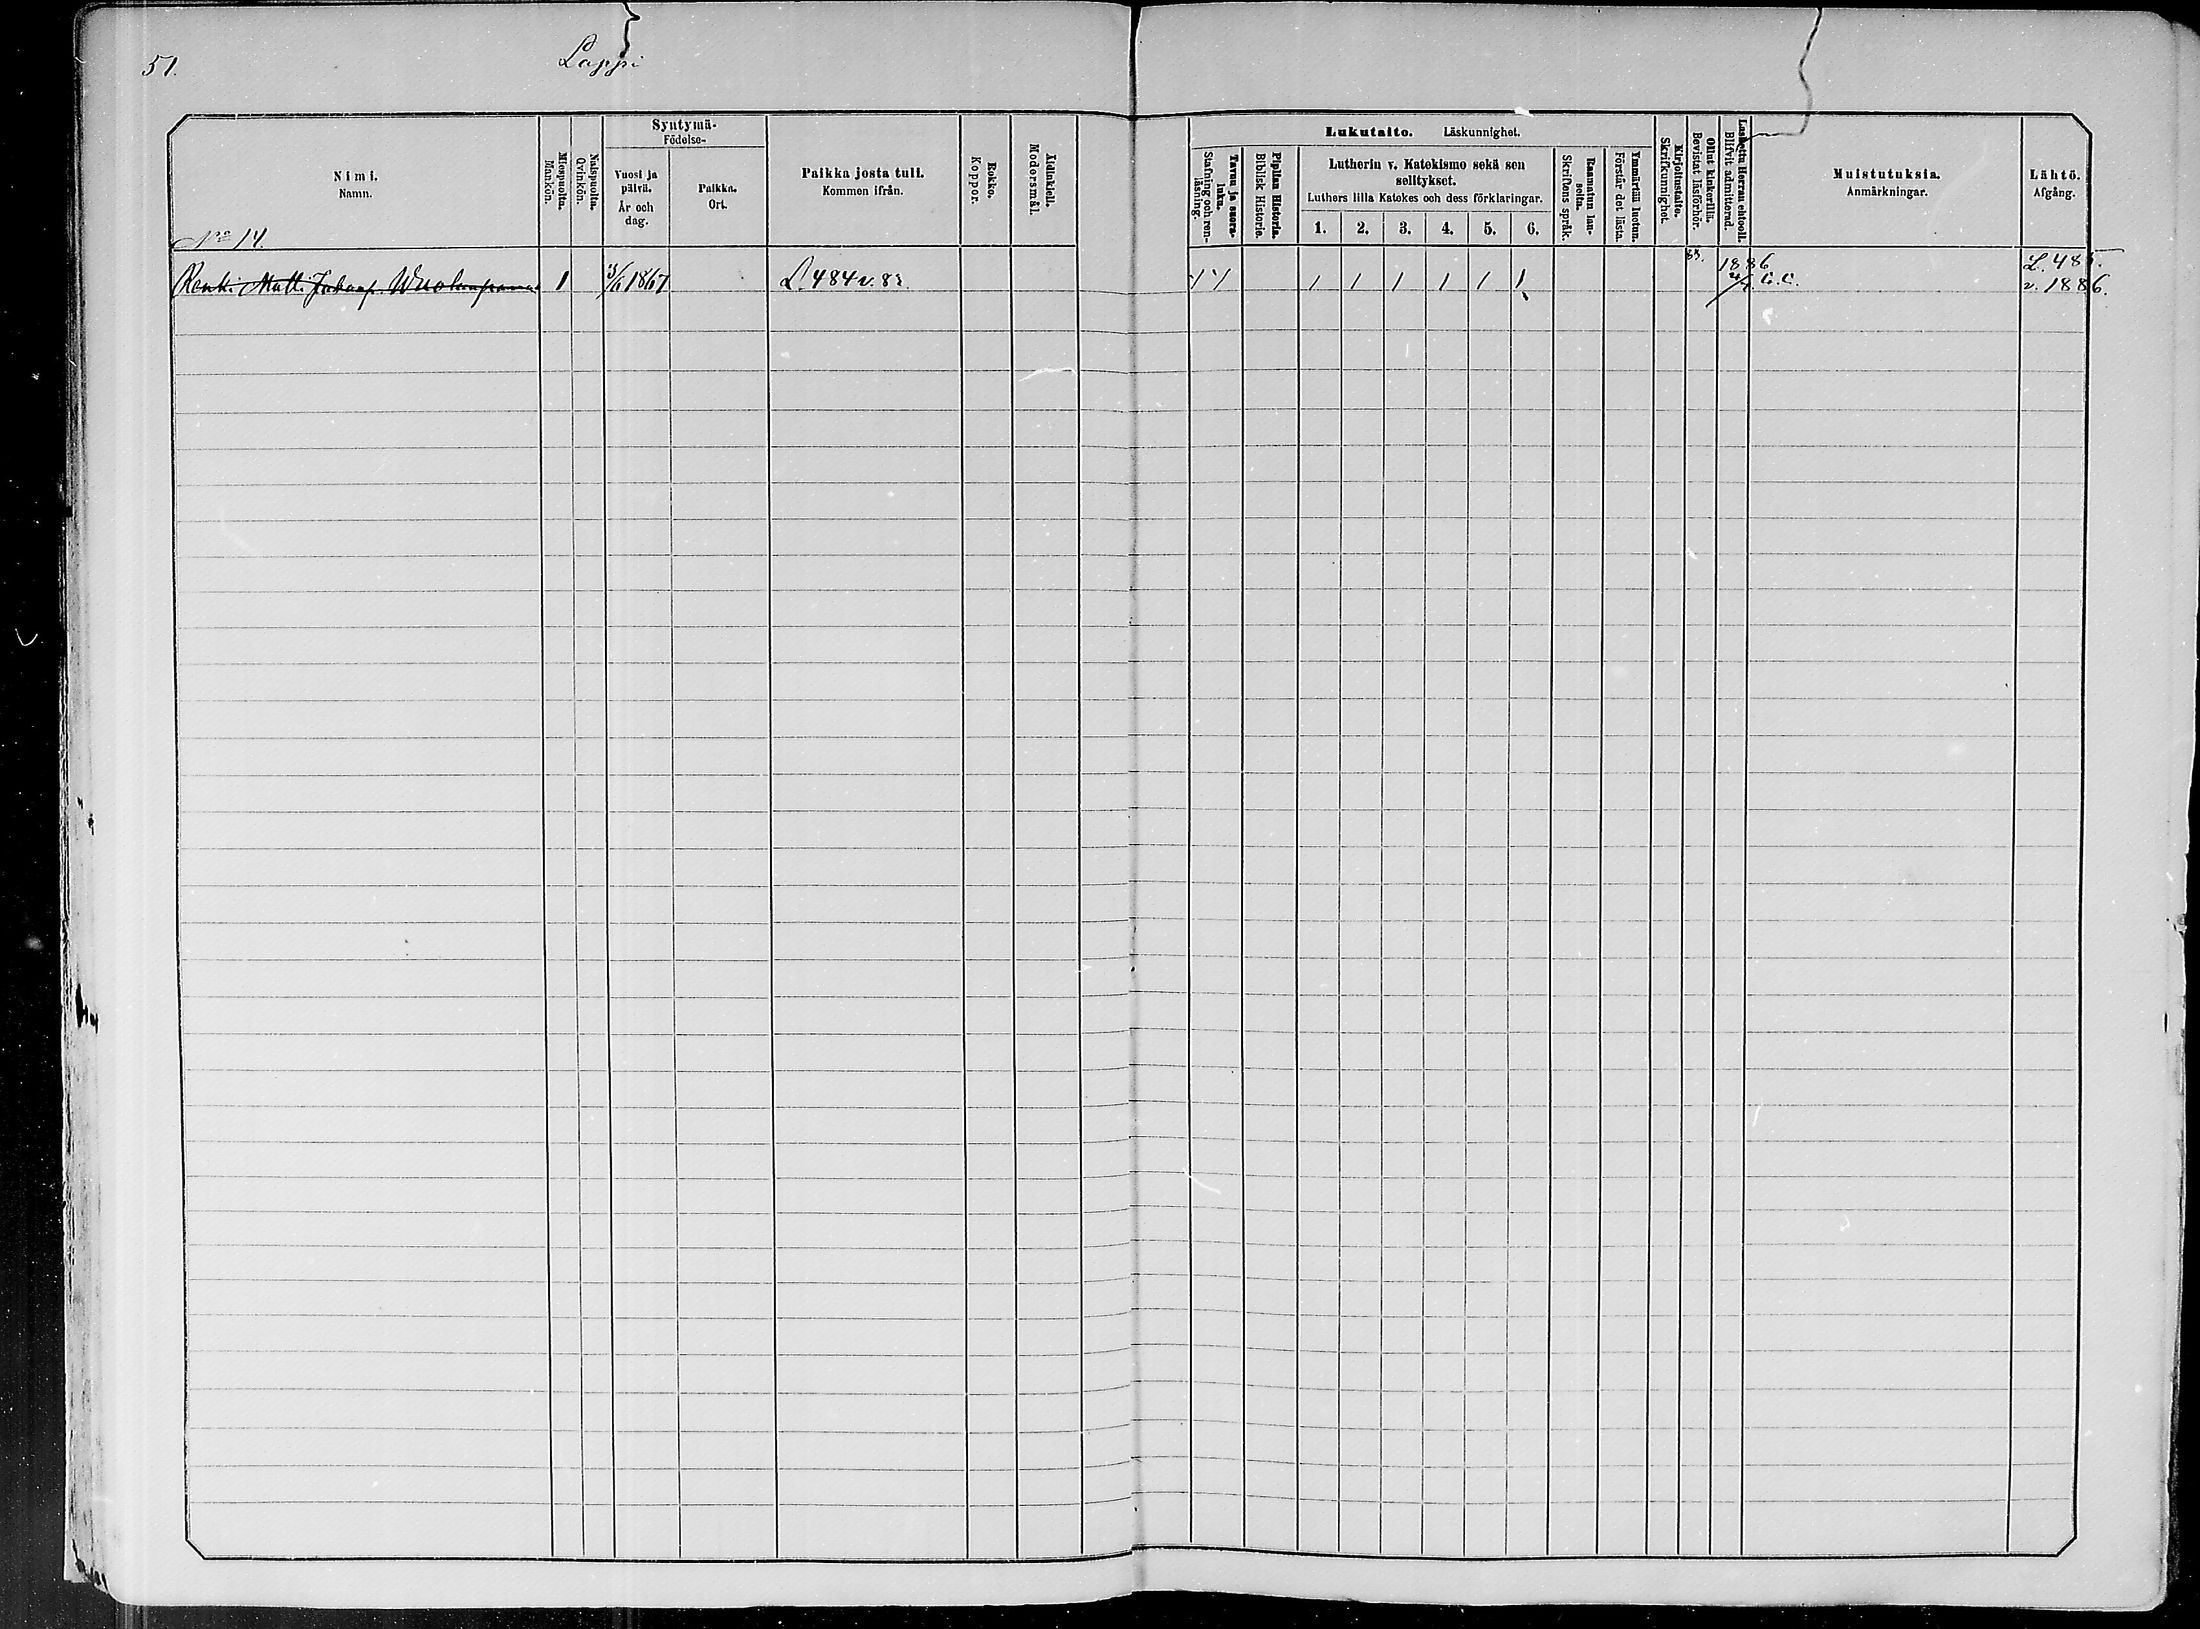 51.
Lappi
Nimi.
Namn.
Miespuolia.
Mankön.
Naispuolia.
Qvinkön.
Syntymä-
Födelse-
Vuosi ja
päivä.
År och
dag.
Paikka.
Ort.
Paikka josta tuli.
Kommen ifrån.
Rokko.
Koppor.
Äidinkieli.
Modersmål.
Lukutaito. Läskunnighet.
Tavuu ja suora-
luku.
Stafning och ren-
läsning.
Piplian Historia.
Biblisk Historie.
Lutherin v. Katekismo sekä sen
selitykset.
Luthers lilla Katekes och dess förklaringar.
1. 2. 3. 4. 5. 6.
Raamatun lau-
seita.
Skriftens språk.
Ymmärtää luetun.
Förstår det lästa.
Kirjoitustaito.
Skrifkunnighet.
Ollut kinkerillä.
Bevistat läsförhör.
Laskettu Herran ehtool.
Blifvit admitterad.
Muistutuksia.
Anmärkningar.
Lähtö.
Afgång.
No 14.
Renki Matti 1 1867 L. 484 v. 83 1 1 1 1 1 1 83. 1886 L. 485.
v. 1886.